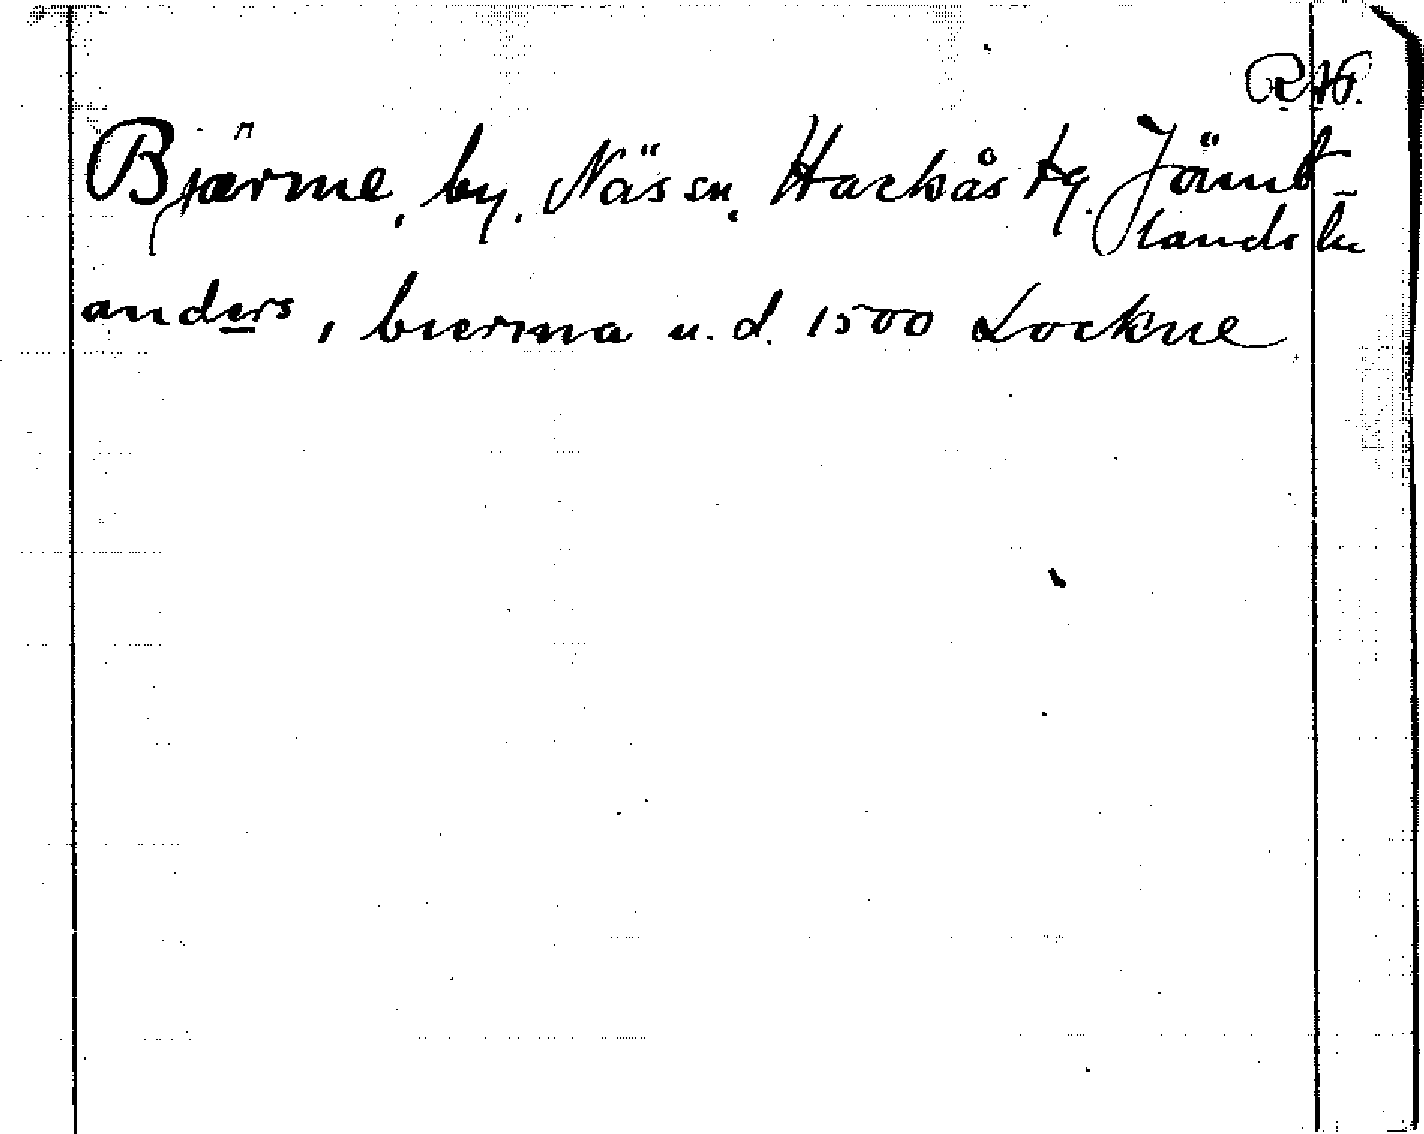 R.W.
Bjärme, by, Näs sn, Hackås tg. Jämt-
lands ln
anders, i bierma u. d. 1500 Lockne